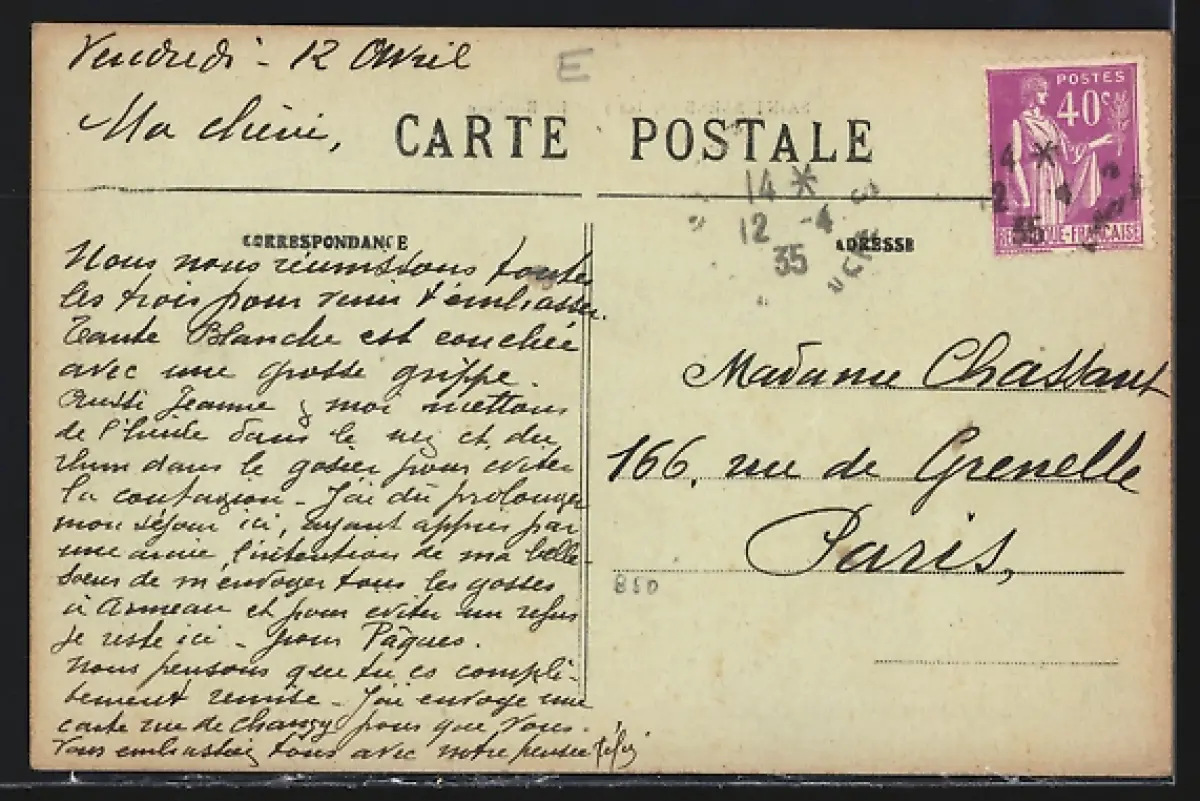 Vendredi - 12 Avril
E
Ma chérie,
CARTE POSTALE
POSTES
40c
14 *
12 -4
35
14 *
2
35
CORRESPONDANCE
ADRESSE
Nous nous réunissons toutes
les trois pour venir t'embrasser.
Tante Blanche est couchée
avec une grosse grippe.
Aussi Jeanne & moi mettons
de l'huile dans le nez et du
rhum dans le gosier pour éviter
la contagion - J'ai dû prolonger
mon séjour ici, ayant appris par
une amie l'intention de ma belle
soeur de m'envoyer tous les gosses
à Armeau et pour éviter un refus
je reste ici - pour Pâques.
Nous pensons que tu es complè-
tement remise - J'ai envoyé une
carte rue de Chanzy pour que vous
vous embrassiez tous avec notre pensée
Madame Chassant
166, rue de Grenelle
Paris,
850